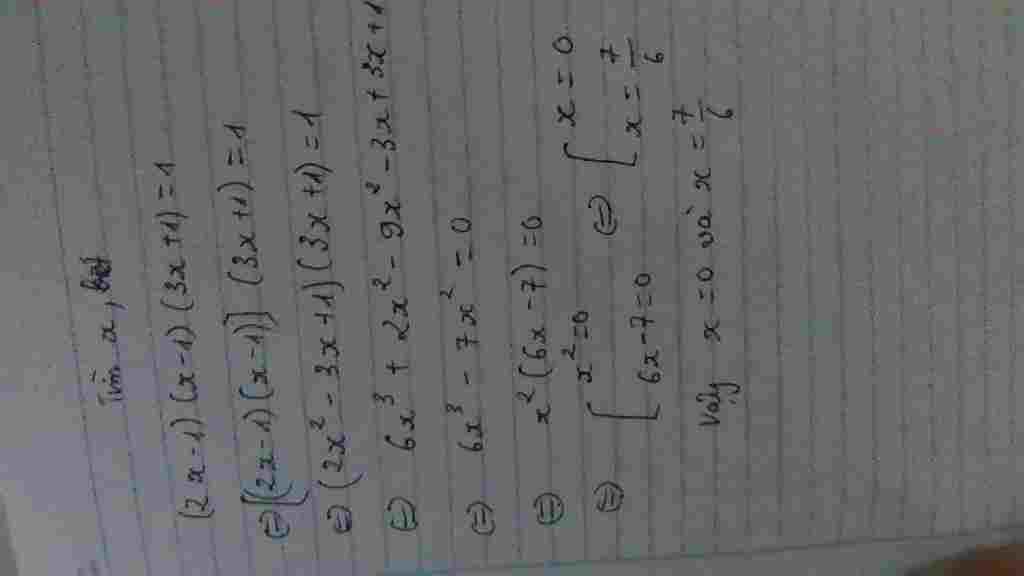 Tìm x,
(2x-1)(x-1)(3x+1)=1
(=) [(2x-1)(x-1)] (3x+1)=1
(=) (2x² - 3x+1)(3x+1)=1
(=) 6x³ + 2x² - 9x² - 3x + 3x + 1
(=) 6x³ - 7x² = 0
(=) x²(6x-7)=0
(=) [ x²=0 (=) [ x=0
6x-7=0 x=7/6
Vậy x=0 và x=7/6